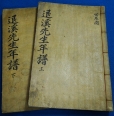 退溪先生年譜 上
退溪先生年譜 下